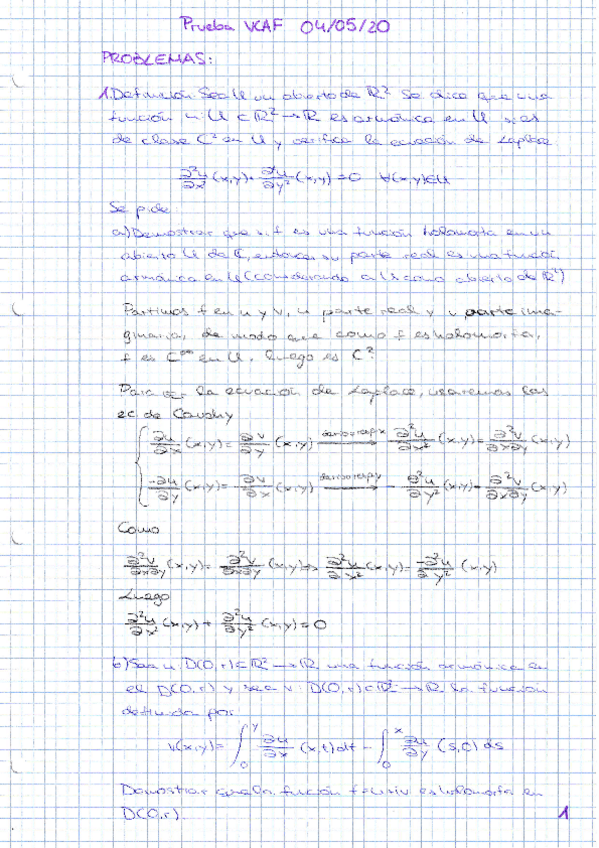 Prueba VCAF 04/05/20
PROBLEMAS:
1. Definición Sea U un abierto de ℝ² Se dice que una
función u: U ⊂ ℝ² → ℝ es armónica en U si es
de clase C² en U y verifica la ecuación de Laplace
∂²u/∂x² (x,y) + ∂²u/∂y² (x,y) = 0 ∀(x,y)∈U
Se pide
a) Demostrar que si f es una función holomorfa en un
abierto U de ℂ, entonces su parte real es una función
armónica en U (considerando a U como abierto de ℝ²)
Partimos f en u y v, u parte real y v parte ima-
ginaria, de modo que como f es holomorfa,
f es C^∞ en U, luego es C².
Para la ecuación de Laplace, usaremos las
ec de Cauchy
∂u/∂x (x,y) = ∂v/∂y (x,y) derivo resp x → ∂²u/∂x² (x,y) = ∂²v/∂x∂y (x,y)
-∂u/∂y (x,y) = ∂v/∂x (x,y) derivo resp y → -∂²u/∂y² (x,y) = ∂²v/∂x∂y (x,y)
Como
∂²v/∂x∂y (x,y) = ∂²v/∂x∂y (x,y) ⇒ ∂²u/∂x² (x,y) = -∂²u/∂y² (x,y)
Luego
∂²u/∂x² (x,y) + ∂²u/∂y² (x,y) = 0
b) Sea u: D(0,r) ⊂ ℝ² → ℝ una función armónica en
el D(0,r) y sea v: D(0,r) ⊂ ℝ² → ℝ la función
definida por:
v(x,y) = ∫₀^y ∂u/∂x (x,t) dt - ∫₀^x ∂u/∂y (s,0) ds
Demostrar que la función f=u+iv es holomorfa en
D(0,r).
1